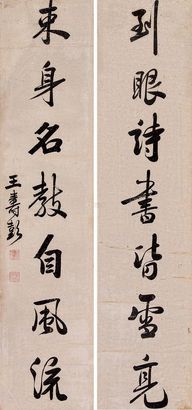 到眼詩書皆雪亮
束身名教自風流
王壽彭